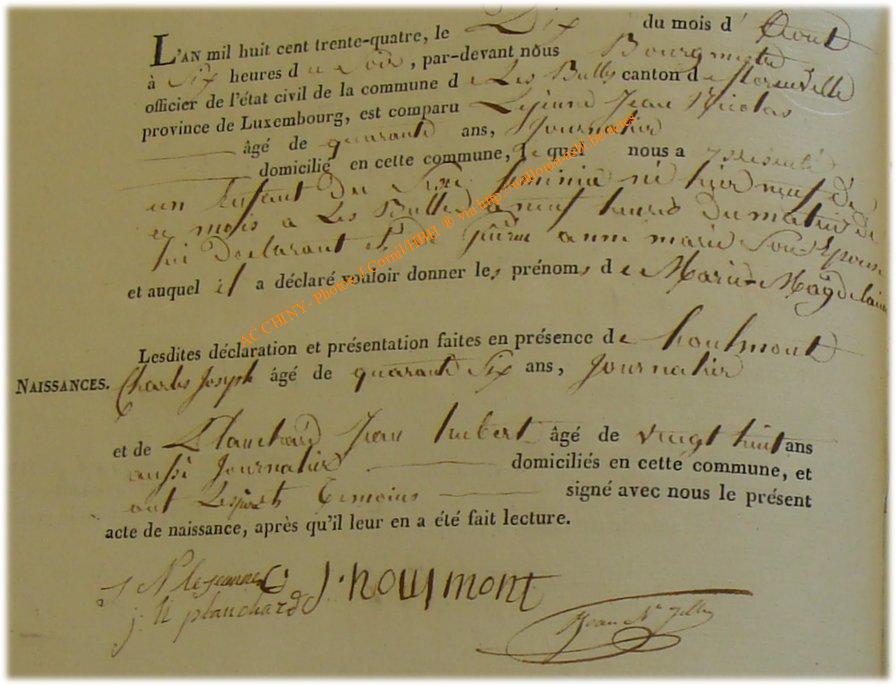 L'AN mil huit cent trente-quatre, le Dix du mois d' Aout
à Six heures d u Soir, par-devant nous Bourgmetre
officier de l'état civil de la commune d e Les Bulles canton d e florenville
province de Luxembourg, est comparu Lejeune Jean Nicolas
âgé de quarante ans, Journalier
domicilié en cette commune, le quel nous a présenté
un Enfant du Sexe feminin né hier neuf de
ce mois a Les Bulles a neuf heures du matin de
lui Declarant et de anne marie Son Epouse
et auquel il a déclaré vouloir donner les prénoms d e Marie-Magdelaine
Lesdites déclaration et présentation faites en présence de houlmont
NAISSANCES. Charles Joseph âgé de quarante Six ans, Journalier
et de Planchard Jean hubert âgé de vingt huit ans
aussi Journalier domiciliés en cette commune, et
ont Lesdits Temoins signé avec nous le présent
acte de naissance, après qu'il leur en a été fait lecture.
J N lejeune J. houlmont
j. h planchard
Jean N.
AC CHINY - Photos J Cornil HDH ® via